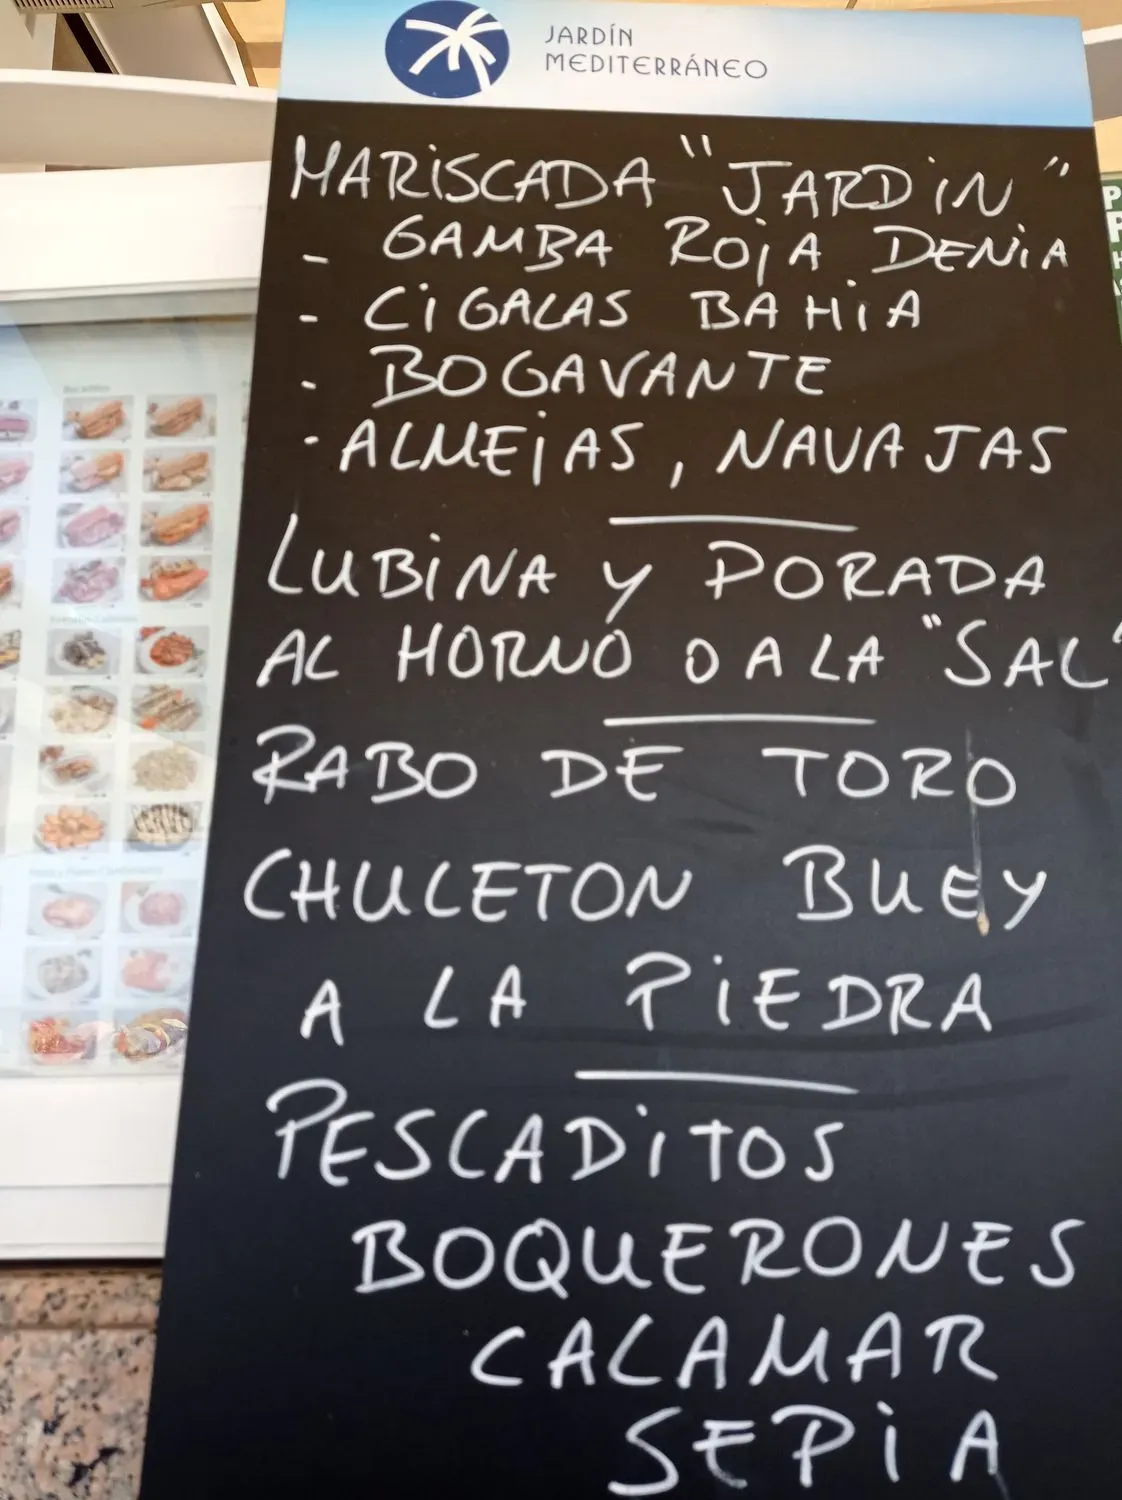 JARDÍN
MEDITERRÁNEO
MARiSCADA "JARDiN"
- GAMBA ROjA DENiA
- CiGALAS BAHiA
- BOGAVANTE
- ALMEjAS, NAVAJAS
LUBiNA y DORADA
AL HORNO O A LA "SAL"
RABO DE TORO
CHULETON BUEy
A LA PiEDRA
PESCADiTOS
BOQUERONES
CALAMAR
SEPiA